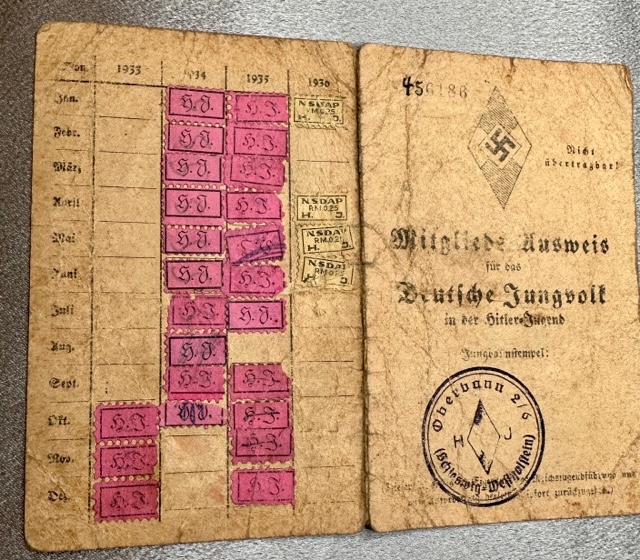 Mon. 1933 1934 1935 1936
Jan. H.J. H.J. NSDAP
H. J.
Febr. H.J. H.J.
März H.J. H.J.
April H.J. H.J. NSDAP
RM.0.25
H. J.
Mai H.J. NSDAP
H. J.
Juni H.J. H.J. NSDAP
H. J.
Juli H.J. H.J.
Aug. H.J.
Sept. H.J. H.J.
Okt. H.J. H.J. H.J.
Nov. H.J. H.J.
Dez. H.J. H.J.
456186
Nicht
übertragbar!
Mitglieds Ausweis
für das
Deutsche Jungvolk
in der Hitler-Jugend
Oberbann 2/6
H J
(Schleswig-Westholstein)
Reichsjugendführung
sofort zurückzugeben.)